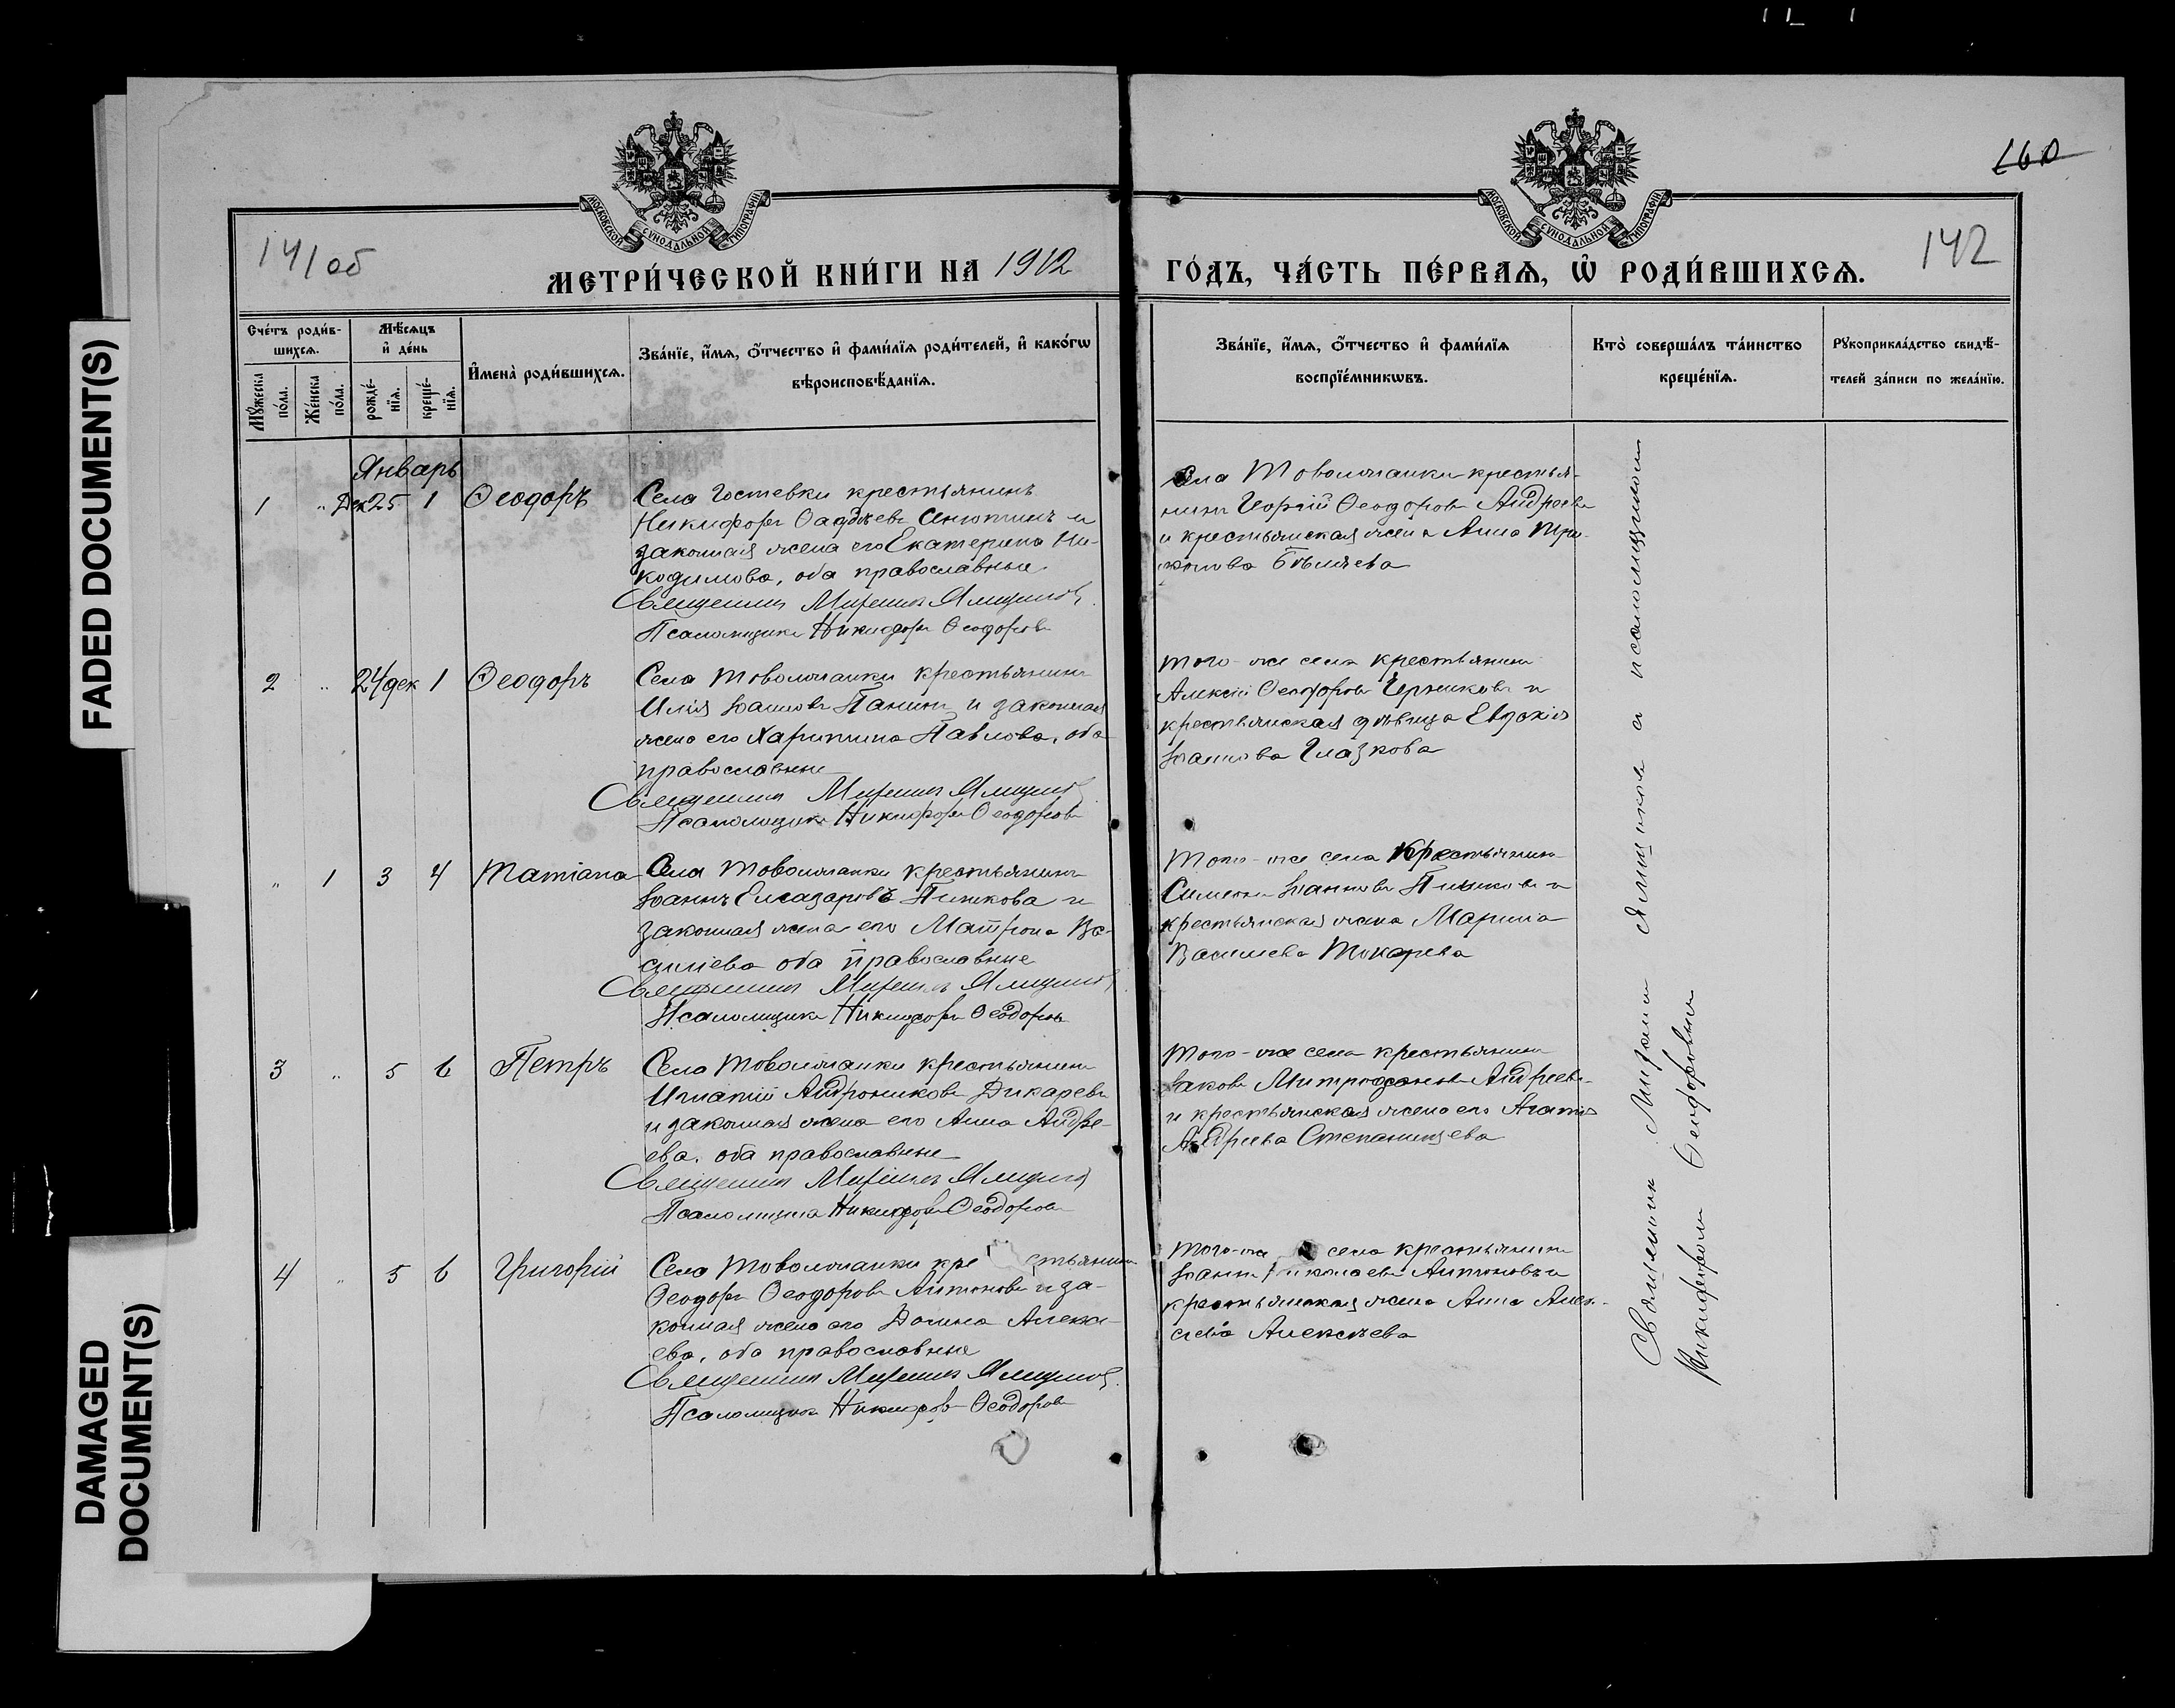 FADED DOCUMENT(S)
DAMAGED
DOCUMENT(S)
МОСКОВСКОЙ СѴНОДАЛЬНОЙ ТИПОГРАФІИ
МОСКОВСКОЙ СѴНОДАЛЬНОЙ ТИПОГРАФІИ
141об
142
МЕТРИ́ЧЕСКОЙ КНИ́ГИ НА 1912
ГО́ДЪ, ЧА́СТЬ ПЕ́РВАѦ, Ѡ҆ РОДИ́ВШИХСѦ.
Сче́тъ роди́в-
шихсѧ.
Мꙋ́жеска
по́ла.
Же́нска
по́ла.
Мѣ́сѧцъ
и҆ де́нь
рожде́-
нїѧ.
креще́-
нїѧ.
И҆мена̀ роди́вшихсѧ.
Зва́нїе, и҆́мѧ, ѻ҆́тчество и҆ фами́лїѧ роди́телей, и҆ како́гѡ
вѣроисповѣ́данїѧ.
Зва́нїе, и҆́мѧ, ѻ҆́тчество и҆ фами́лїѧ
воспрїе́мникѡвъ.
Кто̀ соверша́лъ та́инство
креще́нїѧ.
Рꙋкоприкла́дство свидѣ́-
телей за́писи по жела́нїю.
Январь
1 " Дек 25 1 Ѳеодоръ
Села Гостевки крестьянинъ
Никифоръ и
законная жена его Екатерина Ни-
кодимова, оба православные.
Священникъ
Псаломщикъ Никифоръ Ѳеодоровъ
Села Товолжанки крестья-
нинъ Георгій Ѳеодоровъ Андреевъ
и крестьянская жена Анна
Бѣляева
2 " 24 дек 1 Ѳеодоръ
Села Товолжанки крестьянинъ
Илія Іоанновъ Панинъ и законная
жена его Харитина Павлова, оба
православные
Священникъ
Псаломщикъ Никифоръ Ѳеодоровъ
Того-же села крестьянинъ
Алексій Ѳеодоровъ и
крестьянская дѣвица Евдокія
Іоаннова Глазкова
" 1 3 4 Татіана
Села Товолжанки крестьянинъ
Іоаннъ Елеазаровъ и
законная жена его Матрона Ва-
силіева оба православные
Священникъ
Псаломщикъ Никифоръ Ѳеодоровъ
Того-же села крестьянинъ
Симеонъ Іоанновъ и
крестьянская жена Марина
Васильева Токарева
3 " 5 6 Петръ
Села Товолжанки крестьянинъ
Игнатій Андрониковъ Дикаревъ
и законная жена его Анна Андре-
ева, оба православные
Священникъ
Псаломщикъ Никифоръ Ѳеодоровъ
Того-же села крестьянинъ
Іаковъ Митрофановъ Андреевъ
и крестьянская жена его Агатія
Андреева Степанищева
4 " 5 6 Григорій
Села Товолжанки крестьянинъ
Ѳеодоръ Ѳеодоровъ Антоновъ и за-
конная жена его Домна Алексе-
ева, оба православные
Священникъ
Псаломщикъ Никифоръ Ѳеодоровъ
Того-же села крестьянинъ
Іоаннъ Николаевъ Антоновъ и
крестьянская жена Анна Алек-
сіева Алексѣева
Священник съ псаломщикомъ
Никифоромъ Ѳеодоровым